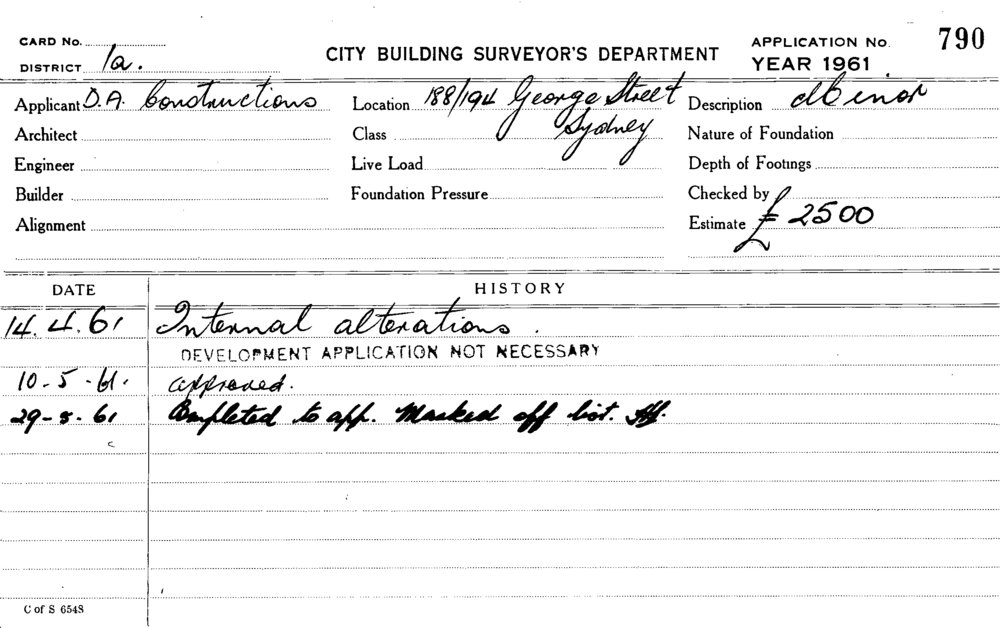 CARD No.
DISTRICT 1a.
CITY BUILDING SURVEYOR'S DEPARTMENT
APPLICATION No. 790
YEAR 1961
Applicant D.A. Constructions
Location 188/194 George Street
Sydney
Description Minor
Architect
Class
Nature of Foundation
Engineer
Live Load
Depth of Footings
Builder
Foundation Pressure
Checked by
Alignment
Estimate £ 2500
DATE HISTORY
14.4.61 Internal alterations.
DEVELOPMENT APPLICATION NOT NECESSARY
10-5-61. approved.
29-8-61 Completed to app. Marked off list.
C of S 6548